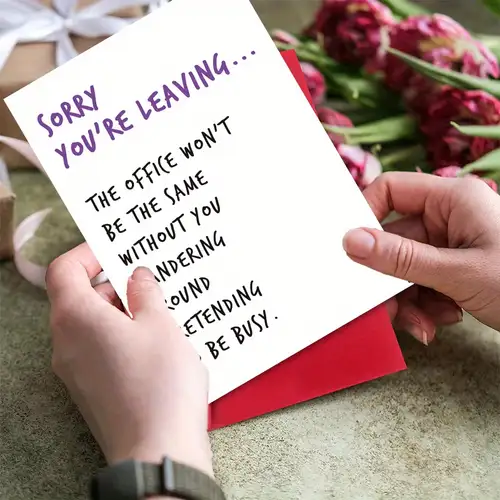 SORRY
YOU'RE LEAVING...
THE OFFICE WON'T
BE THE SAME
WITHOUT YOU
ANDERING
OUND
RETENDING
BE BUSY.